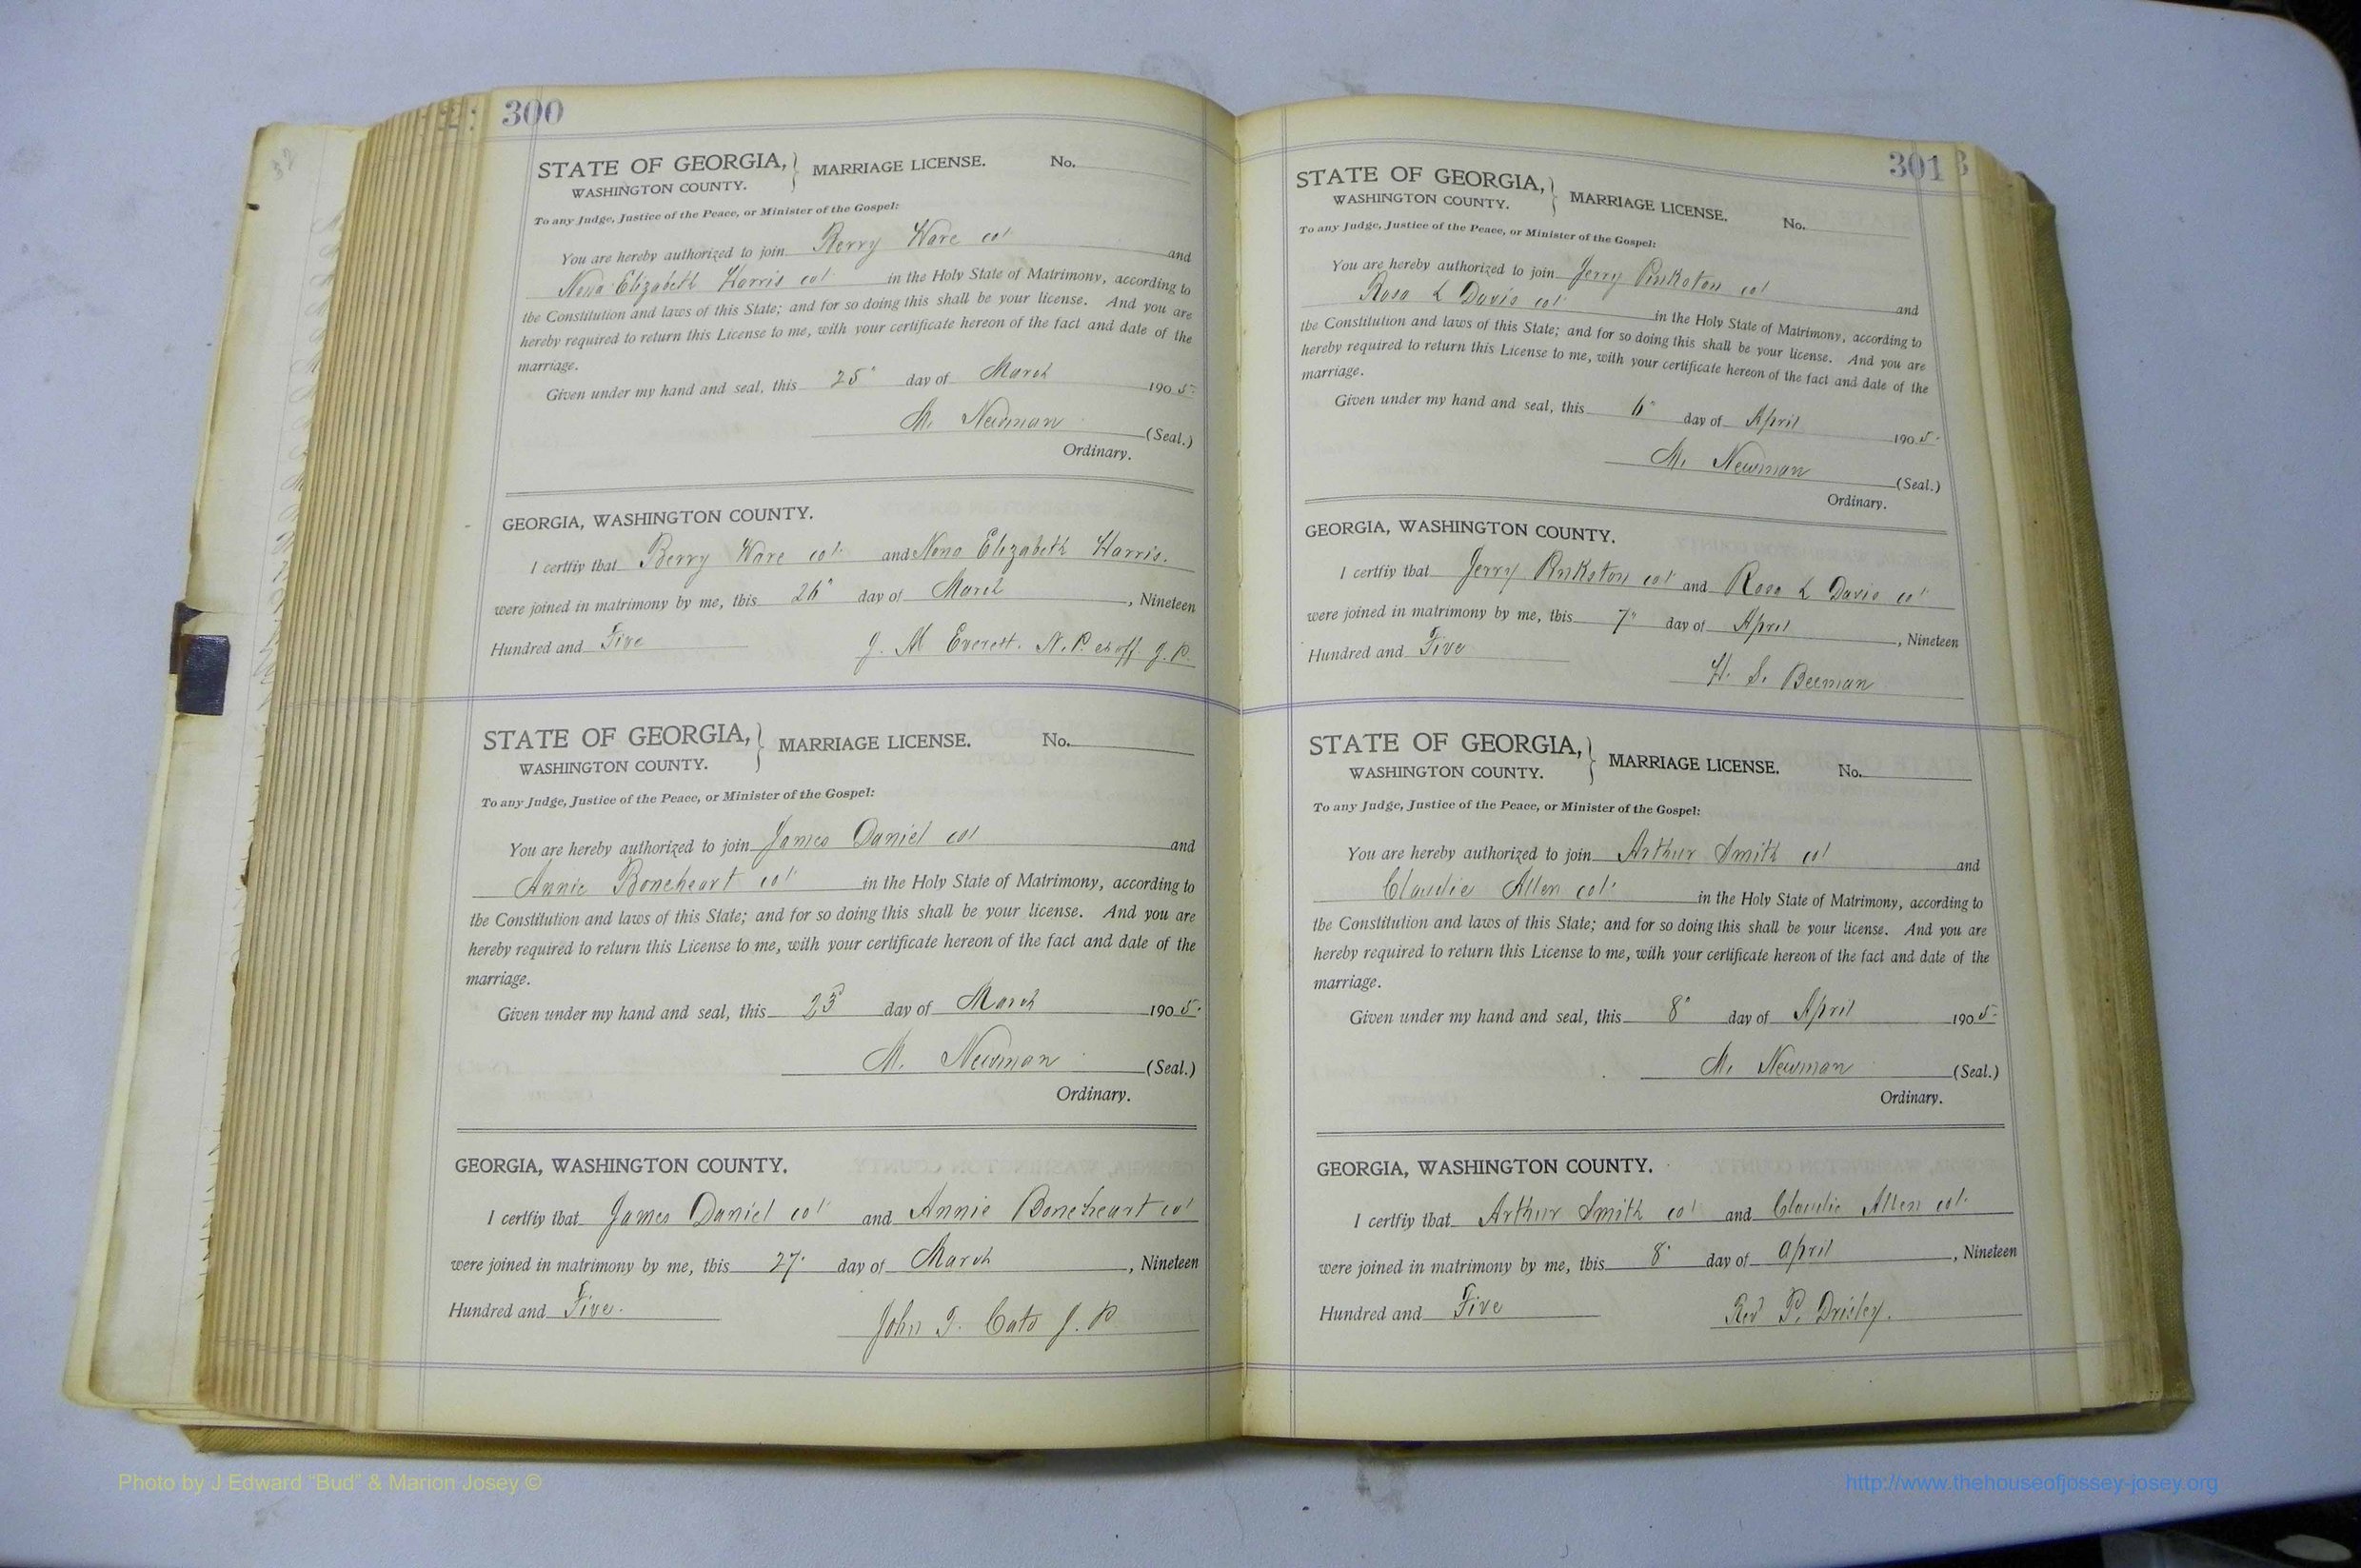 300
STATE OF GEORGIA, } MARRIAGE LICENSE. No.
WASHINGTON COUNTY.
To any Judge, Justice of the Peace, or Minister of the Gospel:
You are hereby authorized to join Berry Ware col and
Nena Elizabeth Harris col in the Holy State of Matrimony, according to
the Constitution and laws of this State; and for so doing this shall be your license. And you are
hereby required to return this License to me, with your certificate hereon of the fact and date of the
marriage.
Given under my hand and seal, this 25" day of March 1905.
M. Newman (Seal.)
Ordinary.
GEORGIA, WASHINGTON COUNTY.
I certfiy that Berry Ware col and Nena Elizabeth Harris.
were joined in matrimony by me, this 26" day of March, Nineteen
Hundred and Five J. M Everett. N. P. ex off. J. P.
STATE OF GEORGIA, } MARRIAGE LICENSE. No.
WASHINGTON COUNTY.
To any Judge, Justice of the Peace, or Minister of the Gospel:
You are hereby authorized to join James Daniel col and
Annie Boneheart col in the Holy State of Matrimony, according to
the Constitution and laws of this State; and for so doing this shall be your license. And you are
hereby required to return this License to me, with your certificate hereon of the fact and date of the
marriage.
Given under my hand and seal, this 23d day of March 1905.
M. Newman (Seal.)
Ordinary.
GEORGIA, WASHINGTON COUNTY.
I certfiy that James Daniel col and Annie Boneheart col
were joined in matrimony by me, this 27" day of March, Nineteen
Hundred and Five. John T. Cato J. P
301
STATE OF GEORGIA, } MARRIAGE LICENSE. No.
WASHINGTON COUNTY.
To any Judge, Justice of the Peace, or Minister of the Gospel:
You are hereby authorized to join Jerry Pinkston col and
Rosa L Davis col in the Holy State of Matrimony, according to
the Constitution and laws of this State; and for so doing this shall be your license. And you are
hereby required to return this License to me, with your certificate hereon of the fact and date of the
marriage.
Given under my hand and seal, this 6" day of April 1905.
M. Newman (Seal.)
Ordinary.
GEORGIA, WASHINGTON COUNTY.
I certfiy that Jerry Pinkston col and Rosa L Davis col
were joined in matrimony by me, this 7" day of April, Nineteen
Hundred and Five H. S. Beeman
STATE OF GEORGIA, } MARRIAGE LICENSE. No.
WASHINGTON COUNTY.
To any Judge, Justice of the Peace, or Minister of the Gospel:
You are hereby authorized to join Arthur Smith col and
Claudie Allen col in the Holy State of Matrimony, according to
the Constitution and laws of this State; and for so doing this shall be your license. And you are
hereby required to return this License to me, with your certificate hereon of the fact and date of the
marriage.
Given under my hand and seal, this 8" day of April 1905.
M. Newman (Seal.)
Ordinary.
GEORGIA, WASHINGTON COUNTY.
I certfiy that Arthur Smith col and Claudie Allen col
were joined in matrimony by me, this 8" day of April, Nineteen
Hundred and Five Rev P.
Photo by J Edward "Bud" & Marion Josey ©
http://www.thehouseofjossey-josey.org